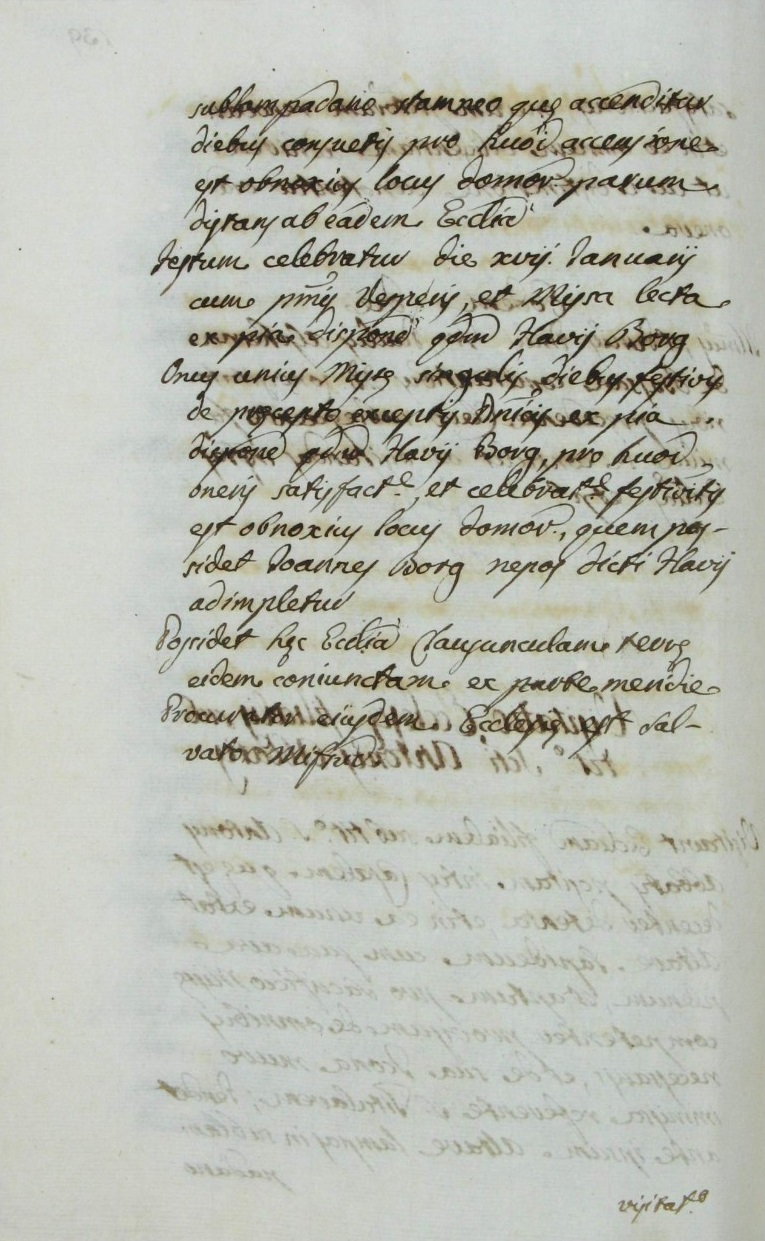 sublampadario stamneo quę accenditur
diebus consuetis pro huōi accensione
est obnoxius locus domor. parum
distans ab eadem Ecclīa
Festum celebratur die xvij. Januarij
cum pm̄is Vesperis, et Missa lecta
ex pia disp̄one qd̄m Flavij Borg
Onus unius Missę singulis diebus festivis
de pręcepto exceptis Dn̄icis ex pia
disp̄one qd̄m Flavij Borg, pro huōi
oneris satisfact.e, et celebrat.e festivitis
est obnoxius locus domor., quem pos-
sidet Joannes Borg nepos dicti Flavij
adimpletur
Possidet hęc Ecclīa clausunculam terrę
eidem coniunctam ex parte meridie
Procurator eiusdem Ecclesię est Sal-
vator Mifsud
visitat.o